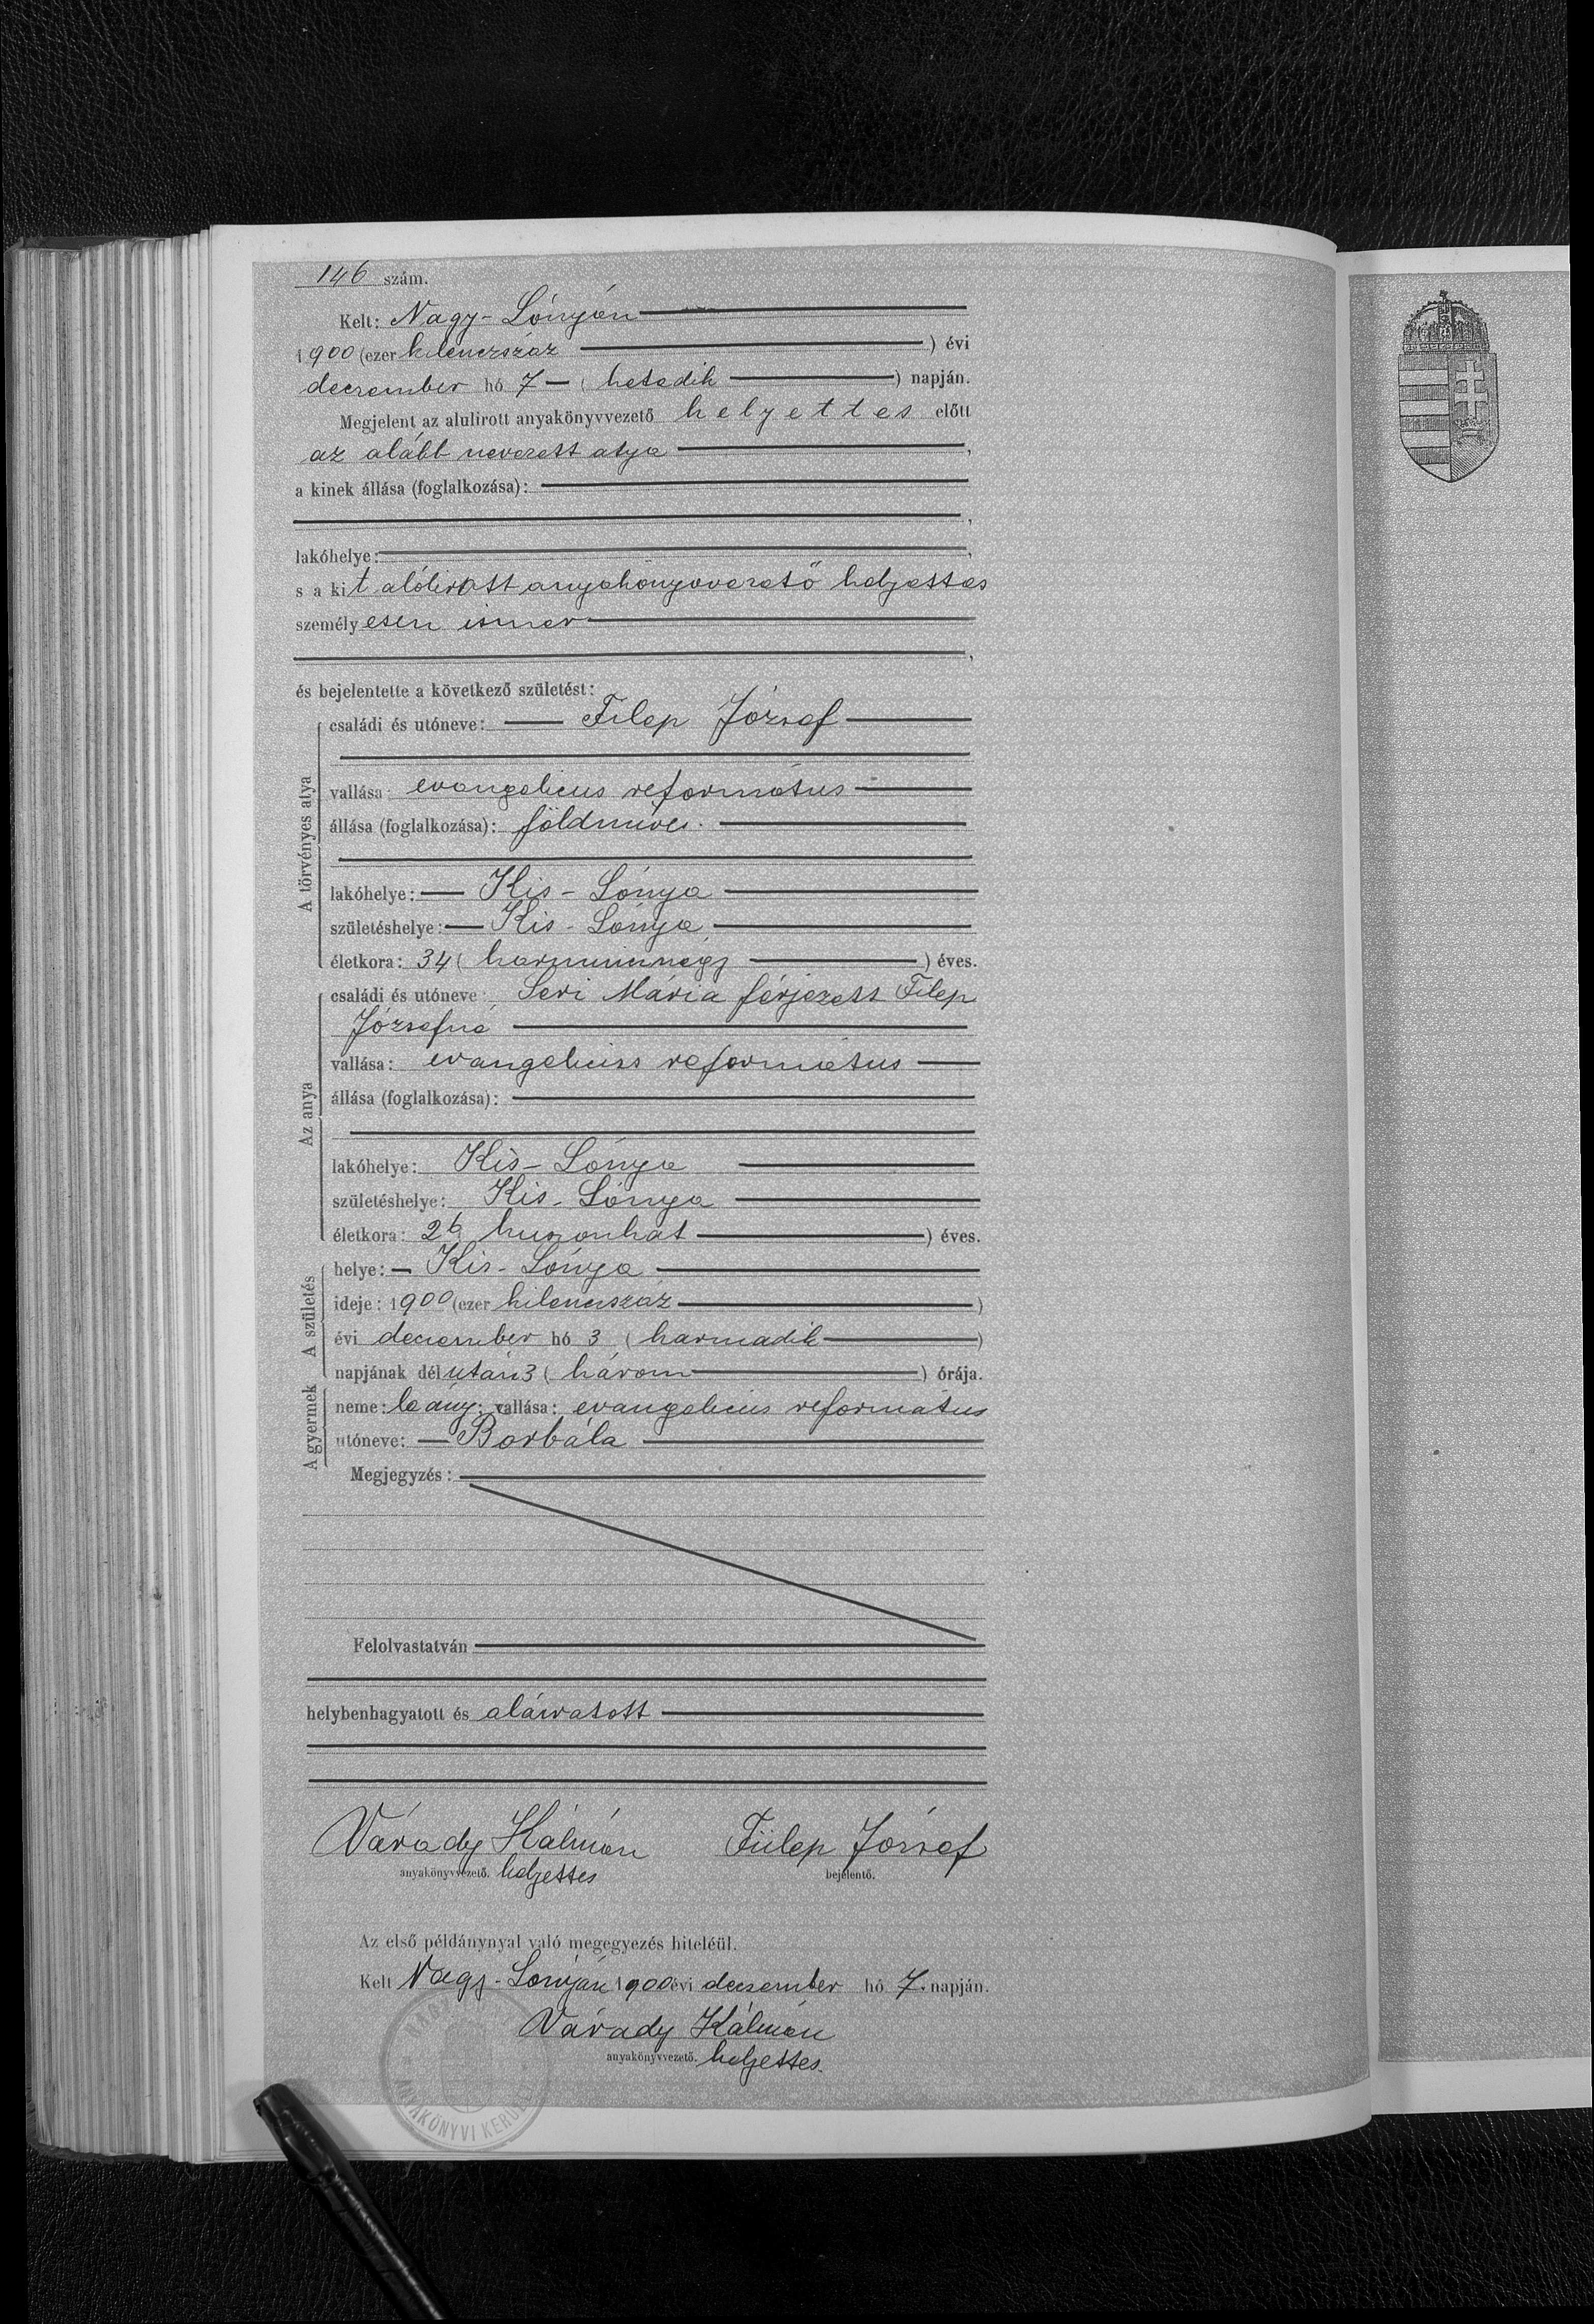 146 szám.
Kelt: Nagy-Lónyán
1900 (ezer kilenczszáz ) évi
deczember hó 7 ( hetedik ) napján.
Megjelent az alulirott anyakönyvvezető helyettes előtt
az alább nevezett atya ,
a kinek állása (foglalkozása):
,
lakóhelye: ,
s a kit alólirott anyakönyvvezető helyettes
személyesen ismer
,
és bejelentette a következő születést:
A törvényes atya
családi és utóneve: Filep József
vallása: evangelicus református
állása (foglalkozása): földmives.
lakóhelye: Kis-Lónya
születéshelye: Kis-Lónya
életkora: 34 ( harmincnégy ) éves.
Az anya
családi és utóneve: Seri Mária férjezett Filep
Józsefné
vallása: evangelicus református
állása (foglalkozása):
lakóhelye: Kis-Lónya
születéshelye: Kis-Lónya
életkora: 26 huszonhat ) éves.
A születés
helye: Kis-Lónya
ideje: 1900 (ezer kilencszáz )
évi december hó 3 ( harmadik )
napjának délután 3 ( három ) órája.
A gyermek
neme: leány; vallása: evangelicus református
utóneve: Borbála
Megjegyzés:
Felolvastatván
helybenhagyatott és aláiratott
Várady Kálmán Fülep József
anyakönyvvezető. helyettes bejelentő.
Az első példánynyal való megegyezés hiteléül.
Kelt Nagy-Lónyán 1900 évi deczember hó 7. napján.
Várady Kálmán
anyakönyvvezető. helyettes.
ANYAKÖNYVI KERÜLET